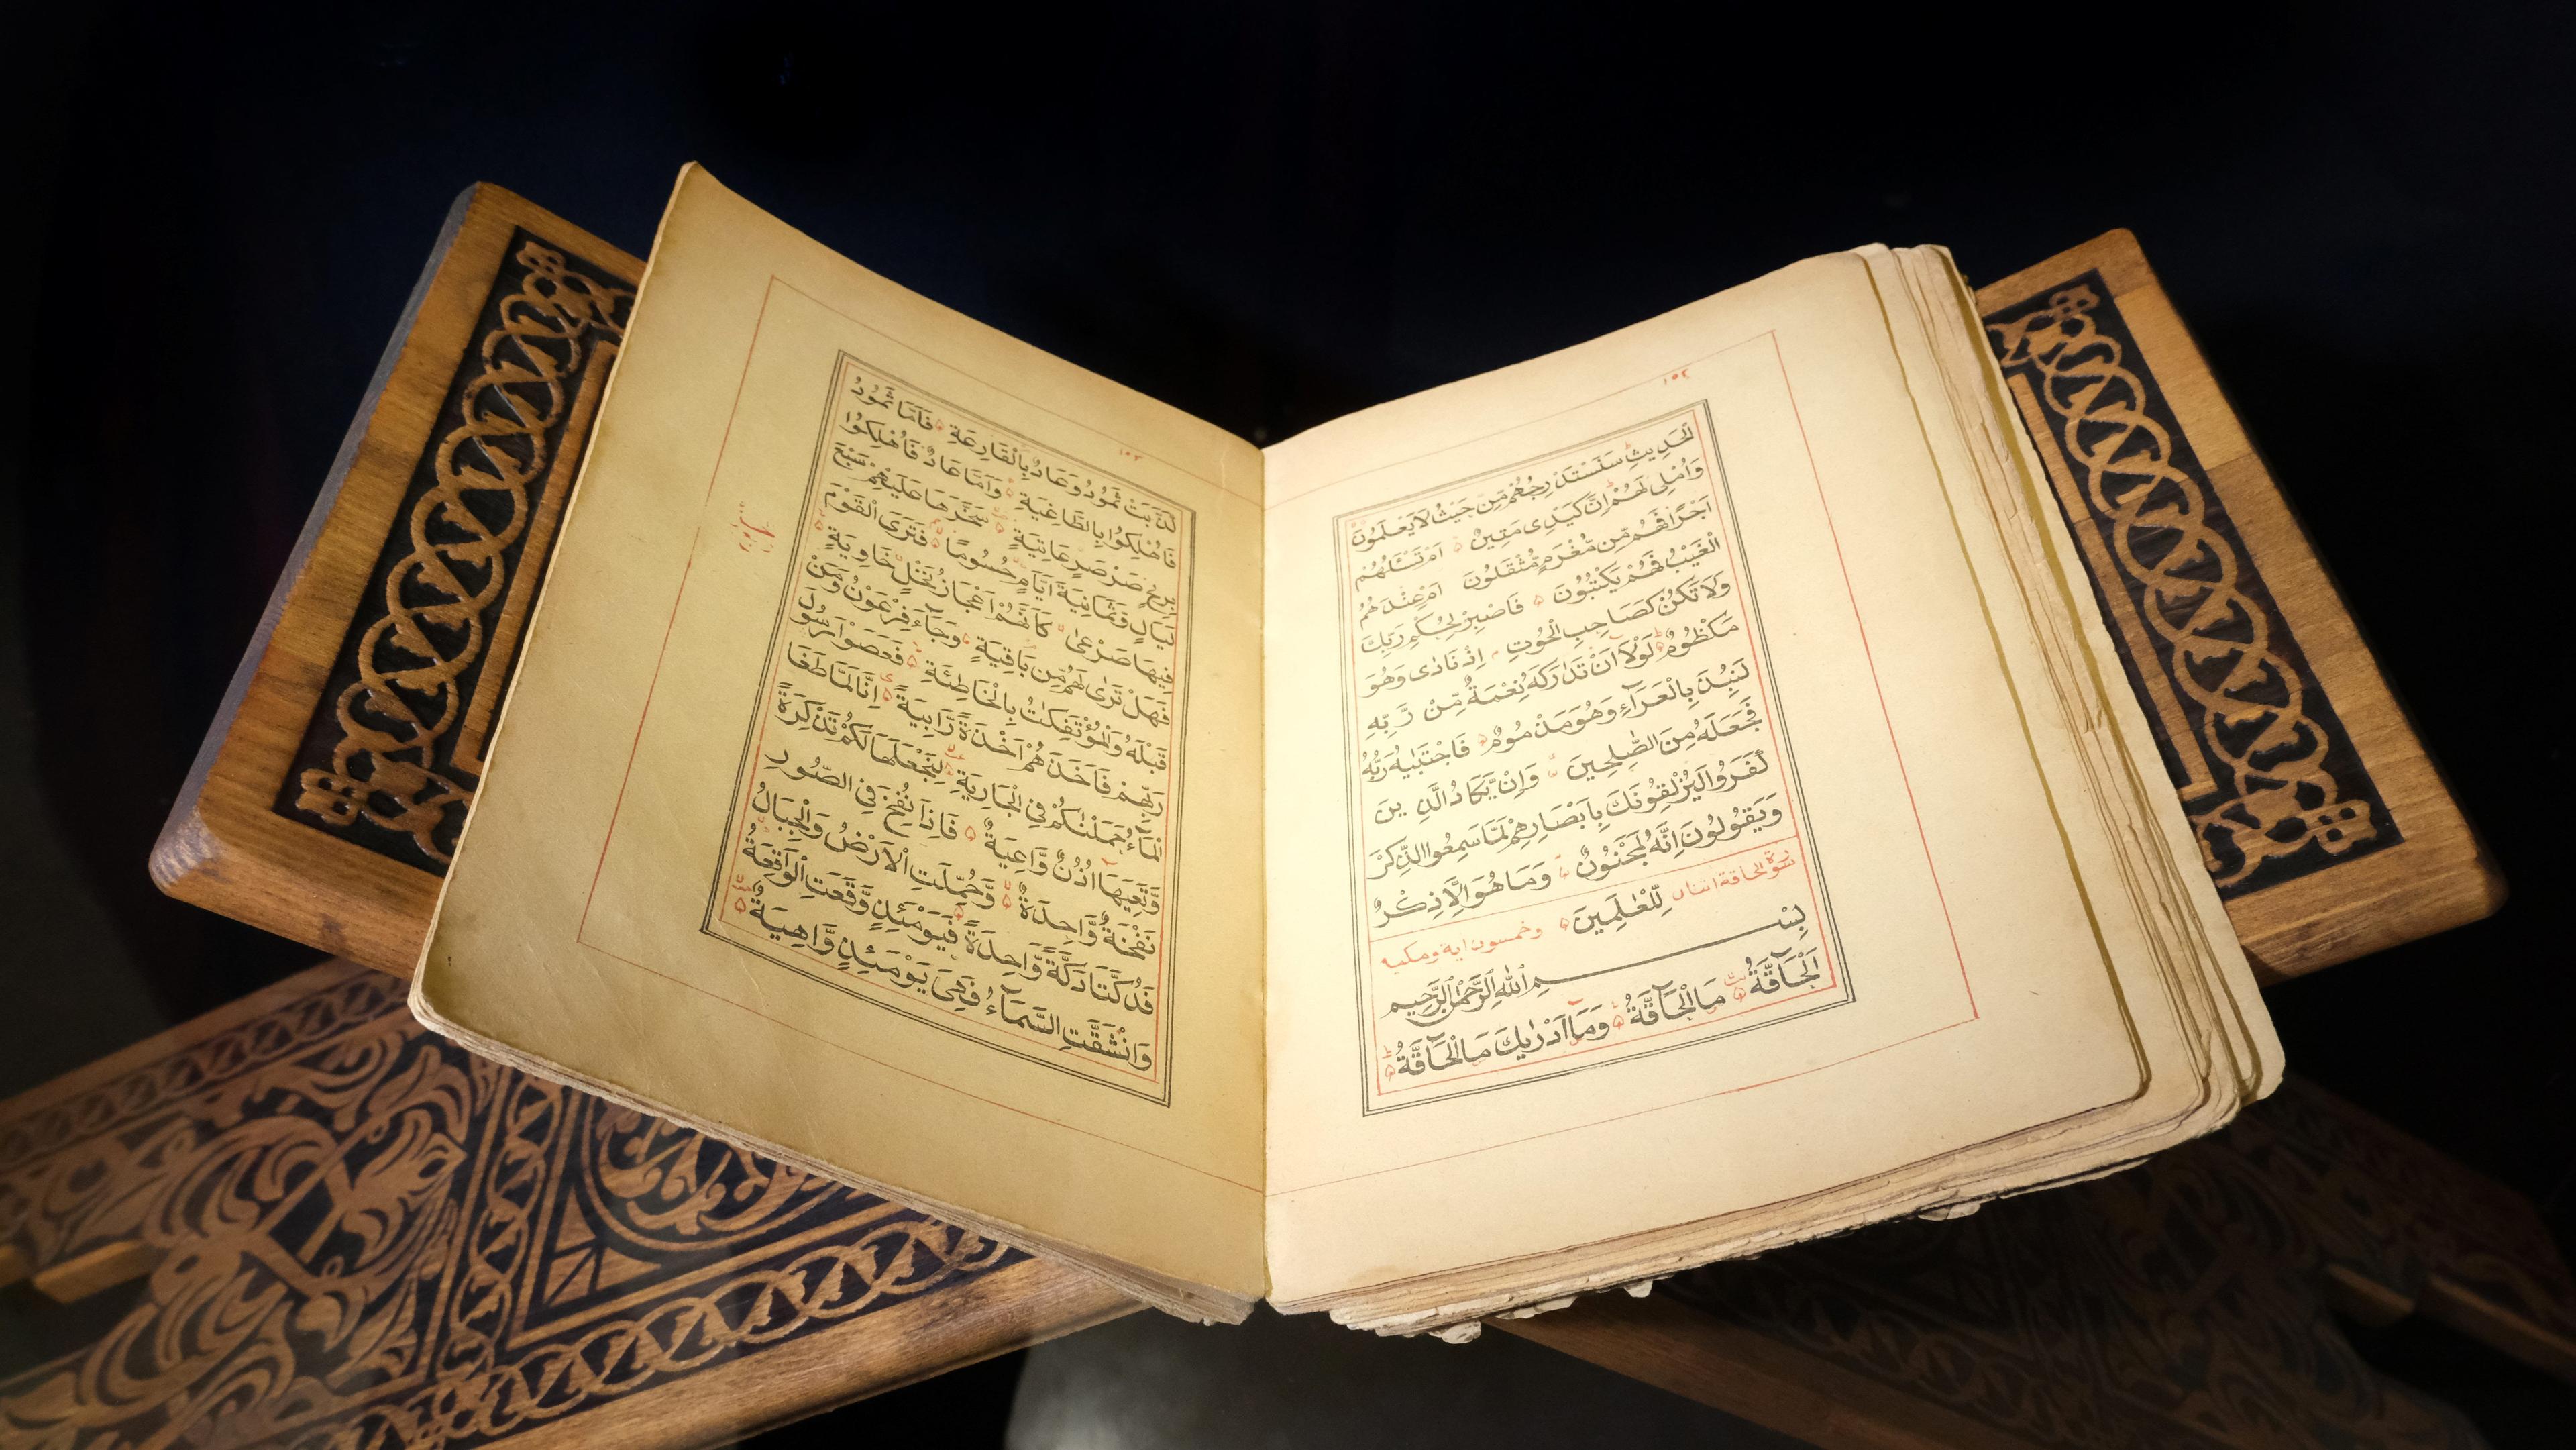 ١٥٢
الْحَدِيثِ سَنَسْتَدْرِجُهُمْ مِّنْ حَيْثُ لَا يَعْلَمُونَ
وَاُمْلِى لَهُمْ اِنَّ كَيْدِى مَتِينٌ اَمْ تَسْئَلُهُمْ
اَجْرًا فَهُمْ مِّنْ مَّغْرَمٍ مُّثْقَلُونَ اَمْ عِنْدَهُمُ
الْغَيْبُ فَهُمْ يَكْتُبُونَ فَاصْبِرْ لِحُكْمِ رَبِّكَ
وَلَا تَكُنْ كَصَاحِبِ الْحُوتِ اِذْ نَادٰى وَهُوَ
مَكْظُومٌ لَوْلَا اَنْ تَدَارَكَهُ نِعْمَةٌ مِّنْ رَّبِّهِ
لَنُبِذَ بِالْعَرَآءِ وَهُوَ مَذْمُومٌ فَاجْتَبٰيهُ رَبُّهُ
فَجَعَلَهُ مِنَ الصّٰلِحِينَ وَاِنْ يَّكَادُ الَّذِينَ
كَفَرُوا لَيُزْلِقُونَكَ بِاَبْصَارِهِمْ لَمَّا سَمِعُوا الذِّكْرَ
وَيَقُولُونَ اِنَّهُ لَمَجْنُونٌ وَمَا هُوَ اِلَّا ذِكْرٌ
سورة الحاقة اثنان لِّلْعٰلَمِينَ وخمسون اية ومكيه
بِسْمِ اللهِ الرَّحْمٰنِ الرَّحِيمِ
اَلْحَآقَّةُ مَا الْحَآقَّةُ وَمَآ اَدْرٰيكَ مَا الْحَآقَّةُ
١٥٣
كَذَّبَتْ ثَمُودُ وَعَادٌ بِالْقَارِعَةِ فَاَمَّا ثَمُودُ
فَاُهْلِكُوا بِالطَّاغِيَةِ وَاَمَّا عَادٌ فَاُهْلِكُوا
بِرِيحٍ صَرْصَرٍ عَاتِيَةٍ سَخَّرَهَا عَلَيْهِمْ سَبْعَ
لَيَالٍ وَّثَمَانِيَةَ اَيَّامٍ حُسُومًا فَتَرَى الْقَوْمَ
فِيهَا صَرْعٰى كَاَنَّهُمْ اَعْجَازُ نَخْلٍ خَاوِيَةٍ
فَهَلْ تَرٰى لَهُمْ مِّنْ بَاقِيَةٍ وَجَآءَ فِرْعَوْنُ وَمَنْ
قَبْلَهُ وَالْمُؤْتَفِكٰتُ بِالْخَاطِئَةِ فَعَصَوْا رَسُولَ
رَبِّهِمْ فَاَخَذَهُمْ اَخْذَةً رَّابِيَةً اِنَّا لَمَّا طَغَا
الْمَآءُ حَمَلْنٰكُمْ فِى الْجَارِيَةِ لِنَجْعَلَهَا لَكُمْ تَذْكِرَةً
وَّتَعِيَهَا اُذُنٌ وَّاعِيَةٌ فَاِذَا نُفِخَ فِى الصُّورِ
نَفْخَةٌ وَّاحِدَةٌ وَّحُمِلَتِ الْاَرْضُ وَالْجِبَالُ
فَدُكَّتَا دَكَّةً وَّاحِدَةً فَيَوْمَئِذٍ وَّقَعَتِ الْوَاقِعَةُ
وَانْشَقَّتِ السَّمَآءُ فَهِىَ يَوْمَئِذٍ وَّاهِيَةٌ